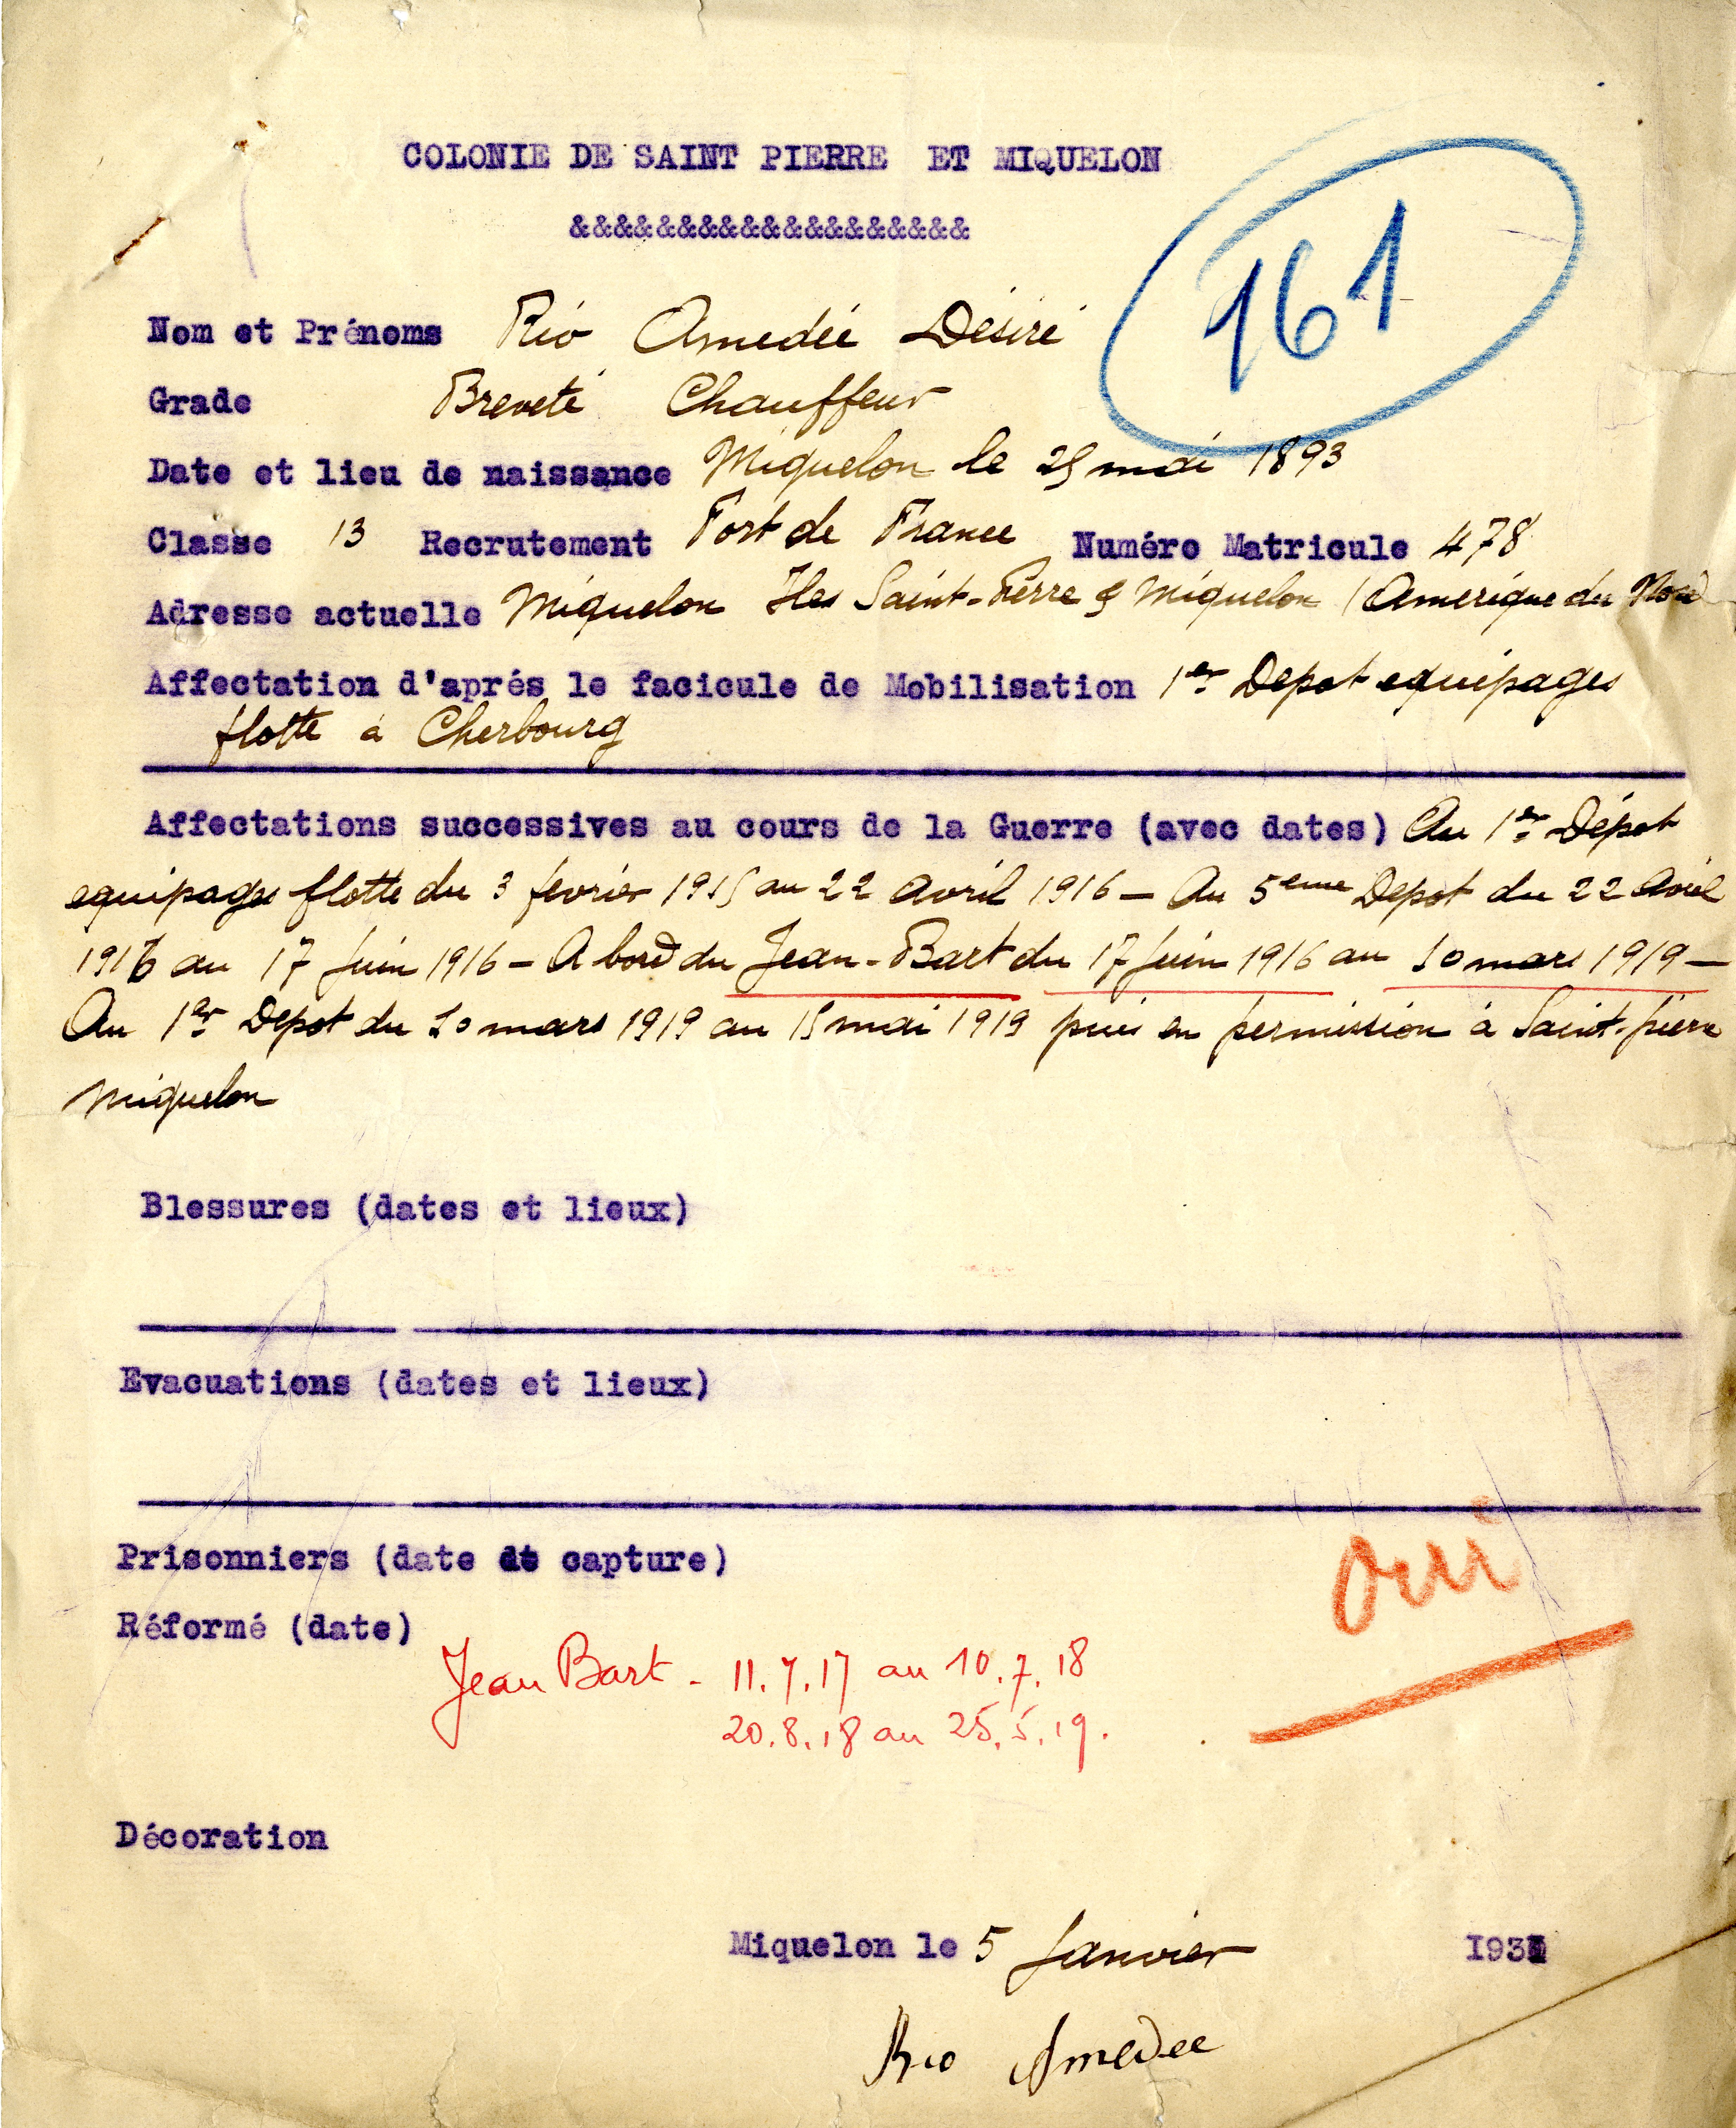 COLONIE DE SAINT PIERRE ET MIQUELON
&&&&&&&&&&&&&&&&&&&
161
Nom et Prénoms Rio Amedée Désiré
Grade Breveté Chauffeur
Date et lieu de naissance Miquelon le 29 mai 1893
Classe 13 Recrutement Fort de France Numéro Matricule 478
Adresse actuelle Miquelon Iles Saint-Pierre & Miquelon (Amerique du Nord
Affectation d'aprés le facicule de Mobilisation 1er Depot equipages
flotte à Cherbourg
Affectations successives au cours de la Guerre (avec dates) Au 1er Dépot
equipages flotte du 3 fevrier 1915 au 22 avril 1916 - Au 5eme Depot du 22 Avril
1916 au 17 Juin 1916 - A bord du Jean-Bart du 17 Juin 1916 au 10 mars 1919 -
Au 1er Depot du 10 mars 1919 au 15 mai 1919 puis en permission à Saint-pierre
Miquelon
Blessures (dates et lieux)
Evacuations (dates et lieux)
Prisonniers (date de capture)
oui
Réformé (date)
Jean Bart - 11.7.17 au 10.7.18
20.8.18 au 25.5.19.
Décoration
Miquelon le 5 Janvier
Rio Amedee